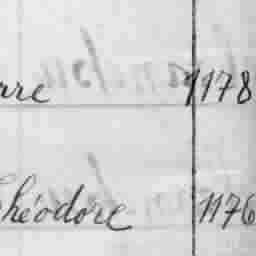 rre 1178
Théodore 1176